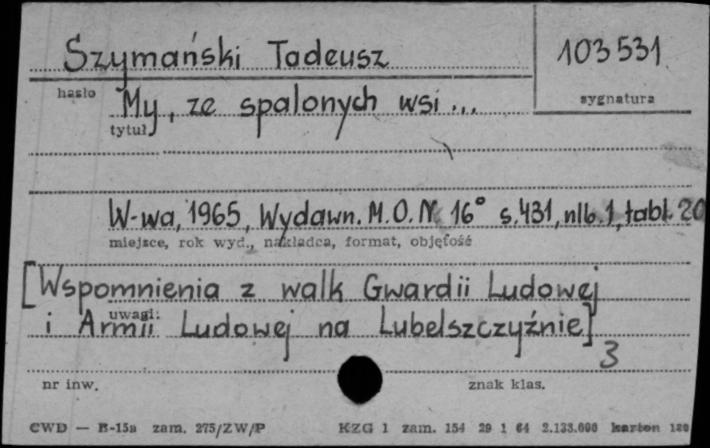 Szymański Tadeusz
103531
hasło
sygnatura
My, ze spalonych wsi...
tytuł
W-wa, 1965, Wydawn. M.O.N. 16° s.431, nlb.1, tabl. 20
miejsce, rok wyd., nakładca, format, objętość
[Wspomnienia z walk Gwardii Ludowej
uwagi:
i Armii Ludowej na Lubelszczyźnie]
3
nr inw.
znak klas.
CWD — B-15a zam. 275/ZW/P
KZG 1 zam. 154 29 1 64 2.133.000 karton